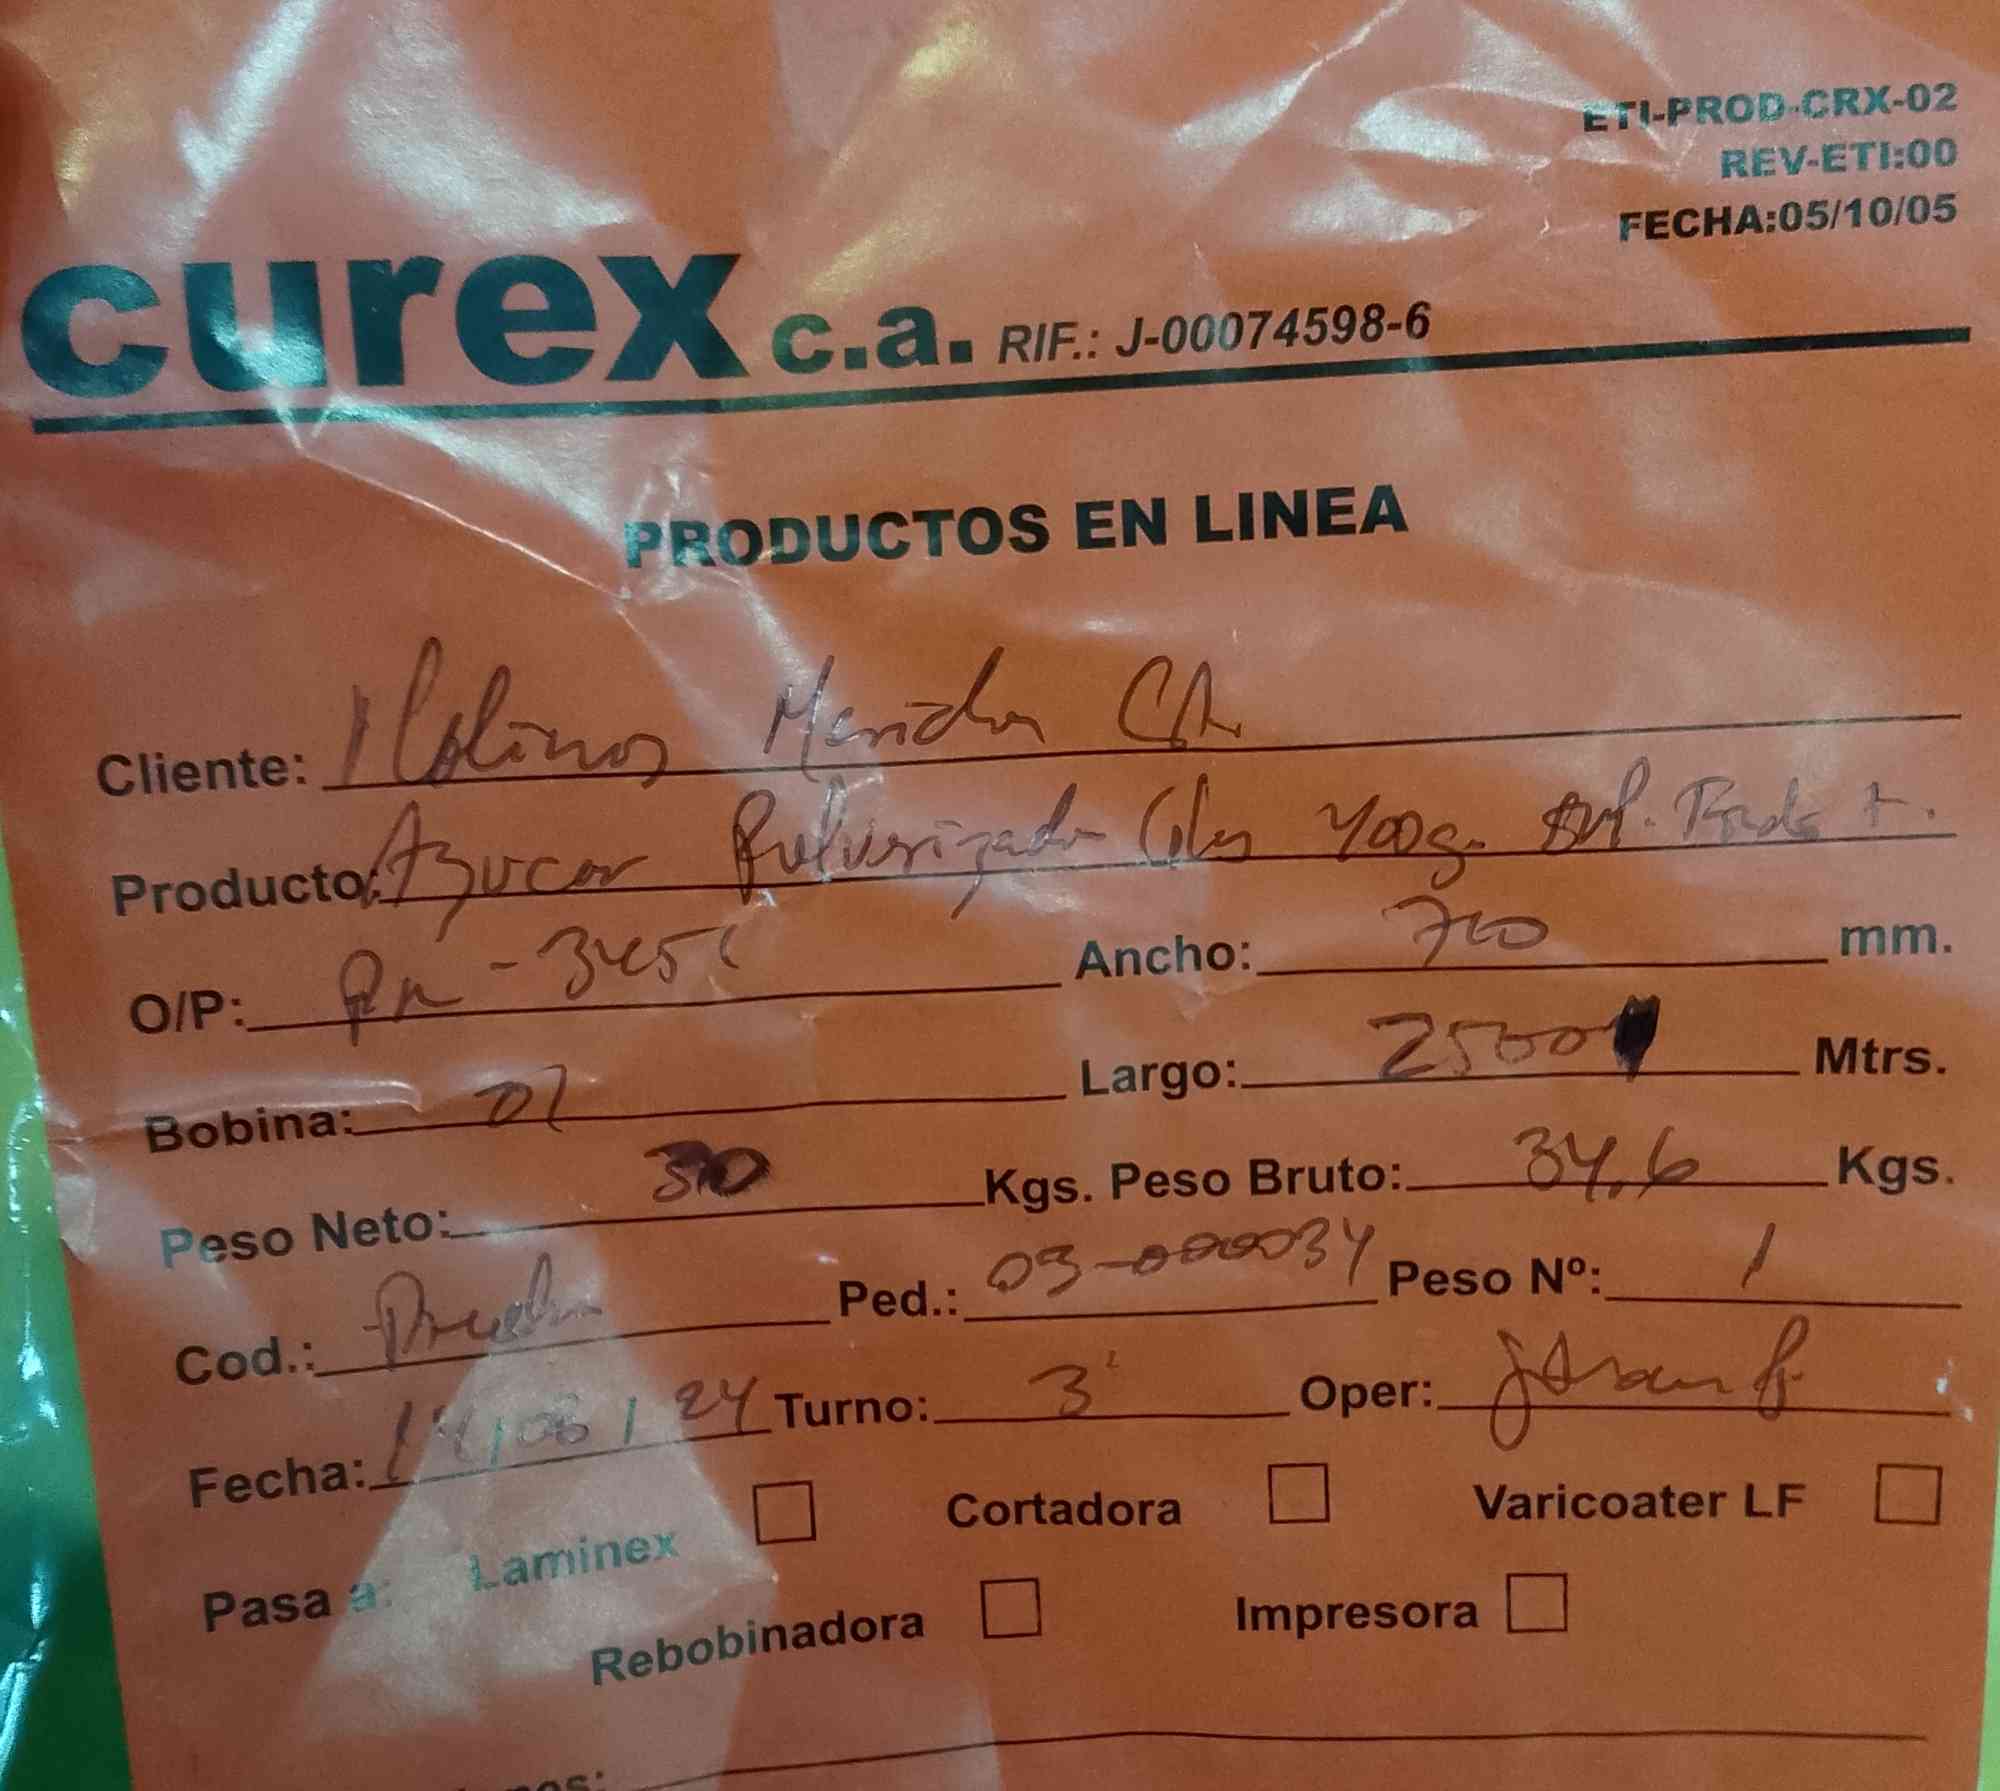 ETI-PROD-CRX-02
REV-ETI:00
FECHA:05/10/05
curex c.a. RIF.: J-00074598-6
PRODUCTOS EN LINEA
Cliente: Molinos Merida CA
Producto: Azucar Pulverizada 400g.
O/P: Ancho: 700 mm.
Bobina: 01 Largo: 2500 Mtrs.
Peso Neto: 30 Kgs. Peso Bruto: 34,6 Kgs.
Cod.: Prueba Ped.: 03-000034 Peso Nº: 1
Fecha: 14/08/24 Turno: 3 Oper:
Pasa a: Laminex Cortadora Varicoater LF
Rebobinadora Impresora